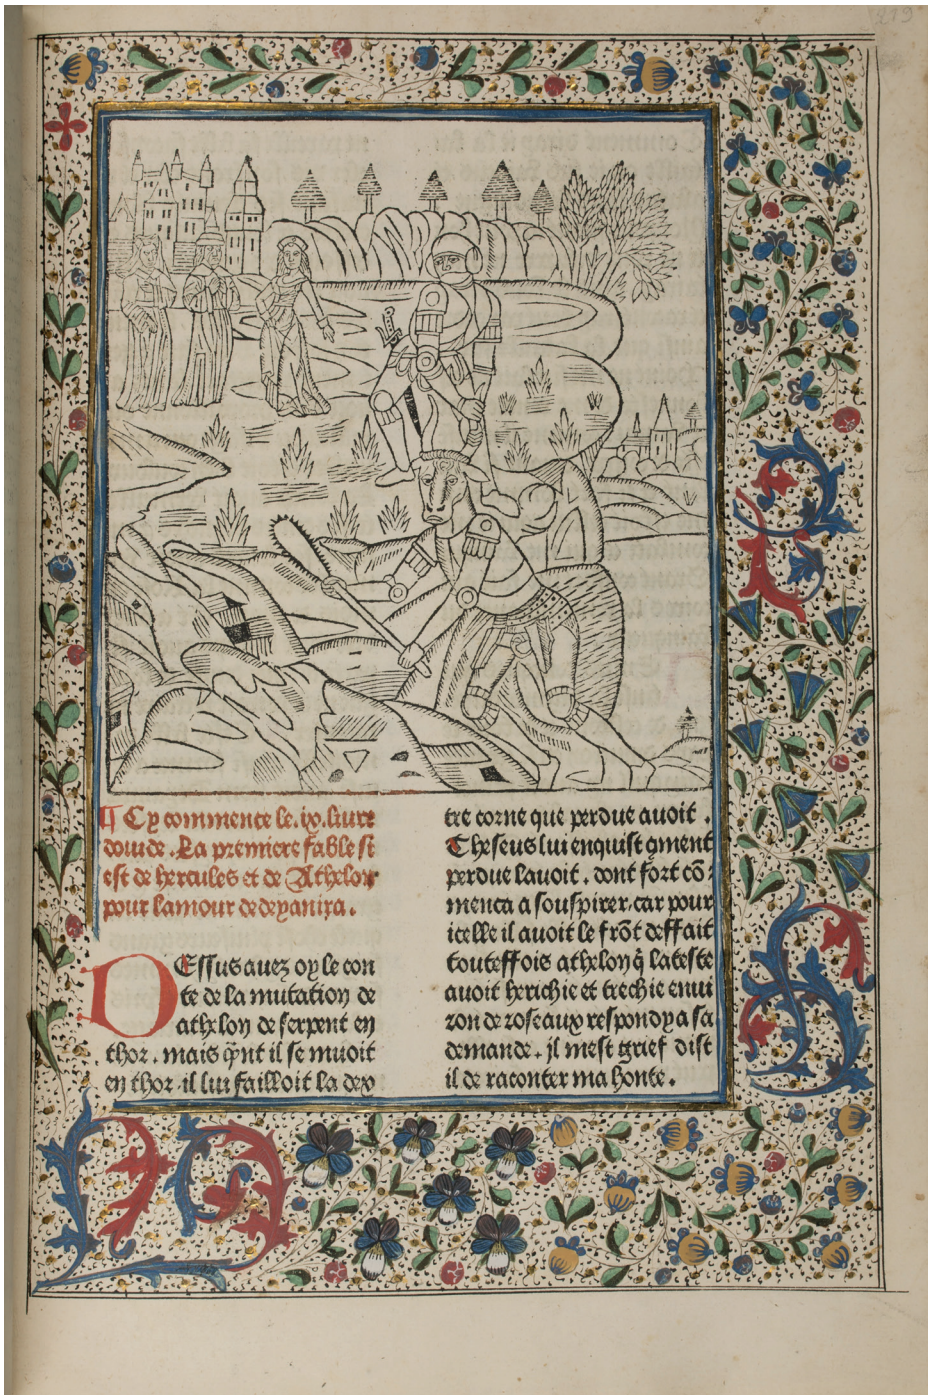 219
¶ Cy commence le .ix. liure
douide . La premiere fable si
est de hercules et de Atheloy
pour lamour de deyanira .
DEssus auez oy le con
te de la mutation de
atheloy de serpent en
thor . mais q̄nt il se muoit
en thor il lui failloit la dex
tre corne que perdue auoit .
Theseus lui enquist q̄ment
perdue lauoit . dont fort cō⸗
menca a souspirer . car pour
icelle il auoit le frōt deffait
touteffois atheloy q̄ lateste
auoit herichie et trechie enui
ron de roseaux respondy a sa
demande . jl mest grief dist
il de raconter ma honte .